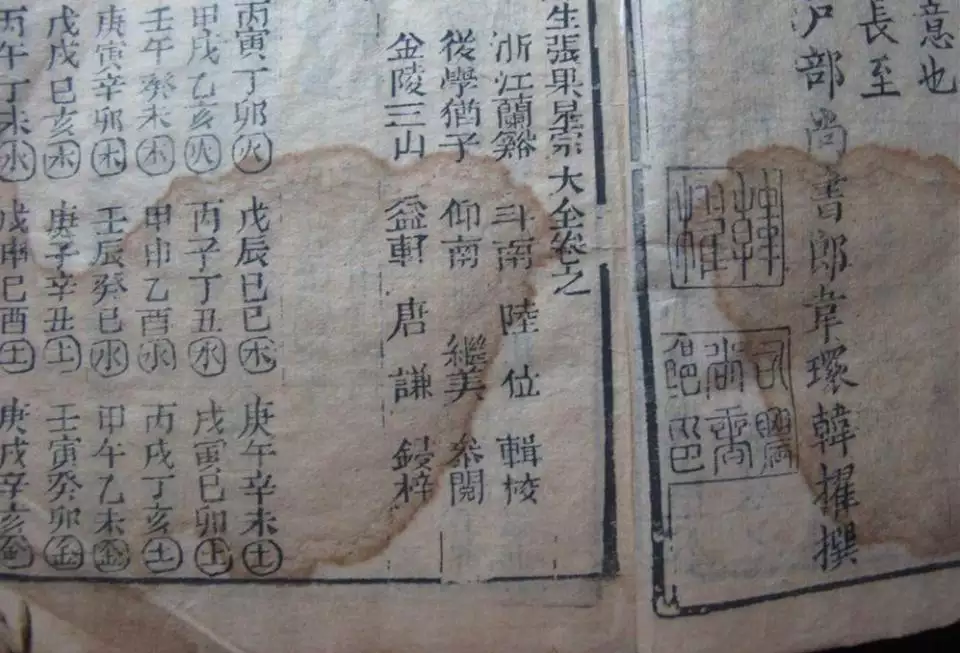 意也
長至
戶部尚書郎韋環韓擢撰
韓擢
生張果星宗大全卷之
浙江蘭谿 斗南 陸 位 輯校
後學猶子 仰南 繼美 叅閱
金陵三山 益軒 唐 謙 鋟梓
丙寅丁卯火 戊辰己巳木 庚午辛未土
甲戌乙亥火 丙子丁丑水 戊寅己卯土
壬午癸未木 甲申乙酉水 丙戌丁亥土
庚寅辛卯木 壬辰癸巳水 甲午乙未金
戊戌己亥木 庚子辛丑土 壬寅癸卯金
丙午丁未水 戊申己酉土 庚戌辛亥金